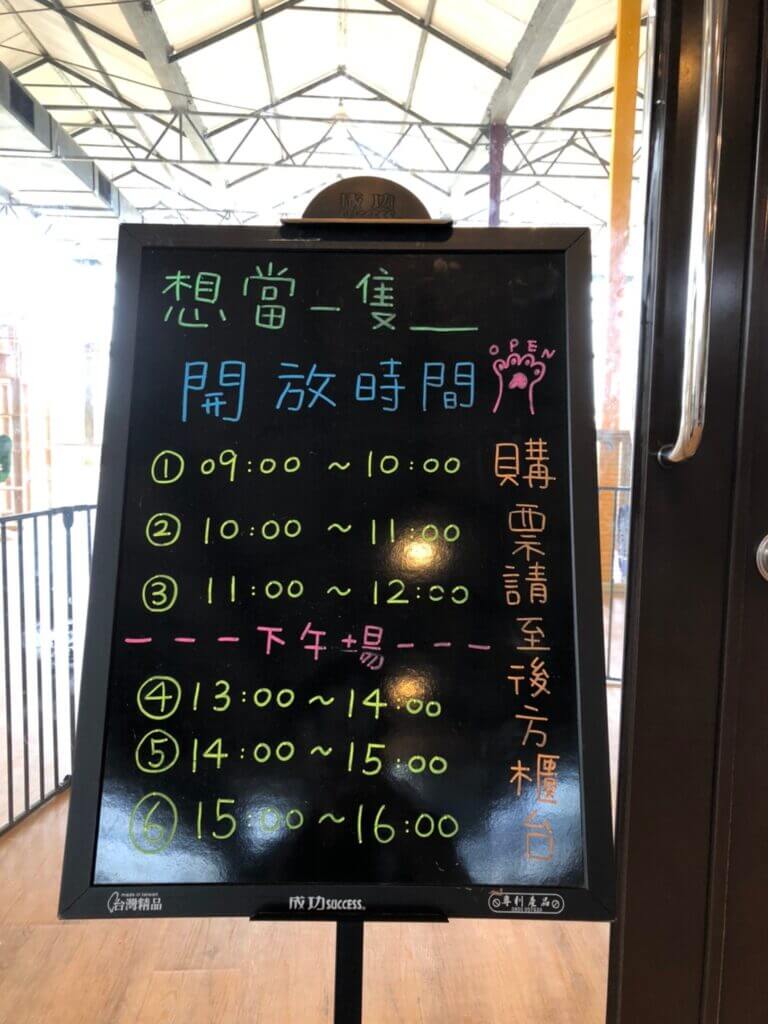 成功
想當一隻__
開放時間
OPEN
① 09:00 ~ 10:00
② 10:00 ~ 11:00
③ 11:00 ~ 12:00
---下午場---
④ 13:00 ~ 14:00
⑤ 14:00 ~ 15:00
⑥ 15:00 ~ 16:00
購票請至後方櫃台
made in taiwan
台灣精品
成功 SUCCESS
專利產品